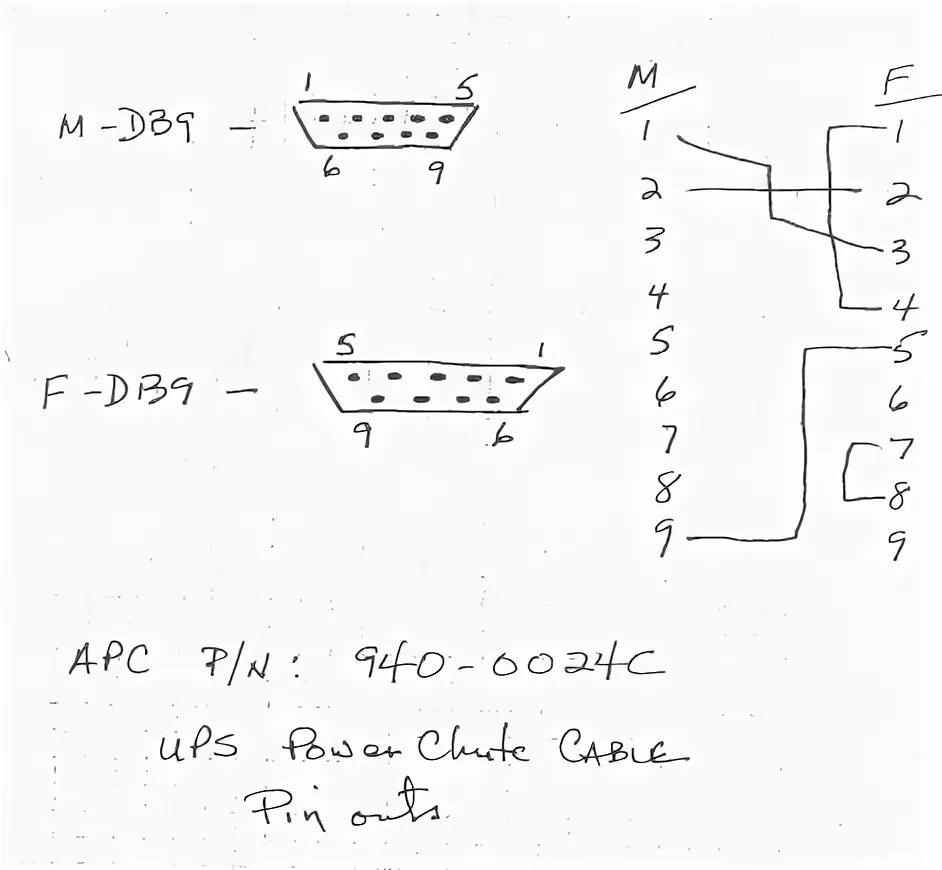 M F
M-DB9 - 1 5
6 9
1 1
2 2
3 3
4 4
F-DB9 - 5 1
9 6
5 5
6 6
7 7
8 8
9 9
APC P/N: 940-0024C
UPS Power Chute CABLE
Pin outs